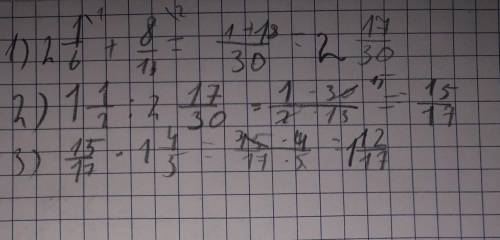 1) 2 1/6 + 8/15 = 1+18/30 = 2 17/30
2) 1 1/2 : 2 17/30 = 1 · 30/2 · 13 = 15/17
3) 15/17 · 1 4/5 = 15 · 4/17 · 5 = 1 12/17